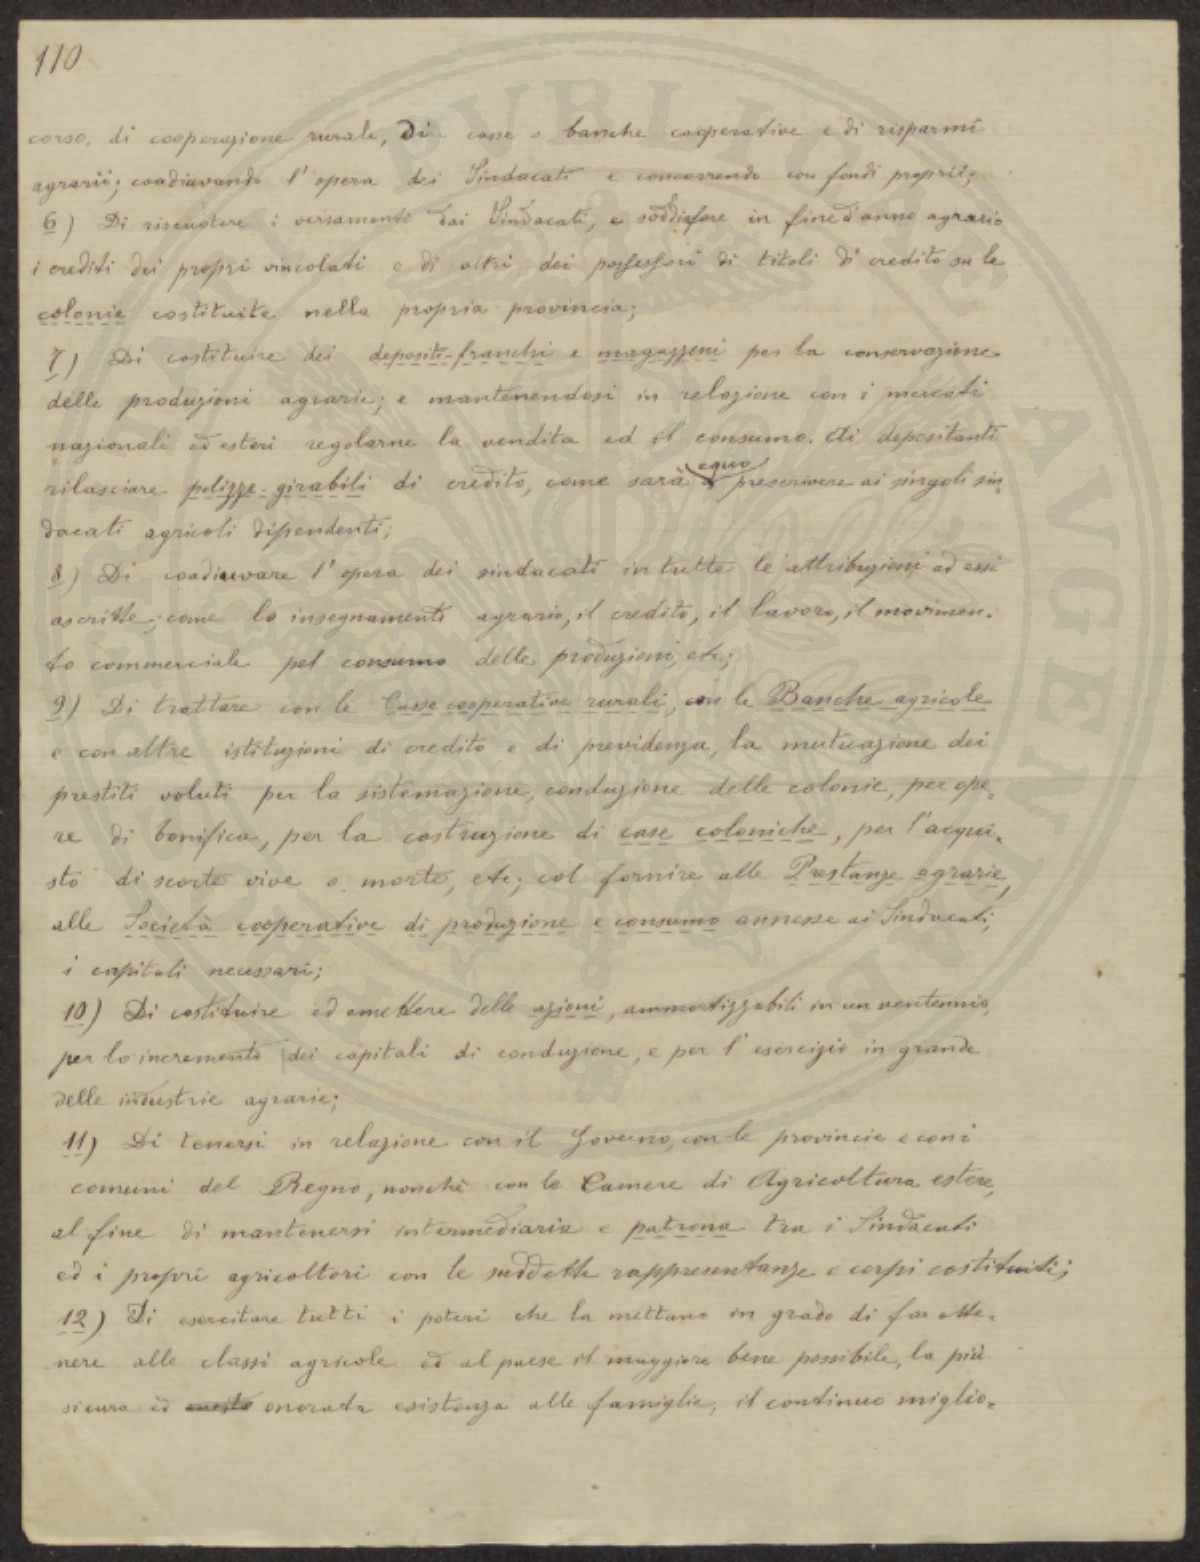 110
corso, di cooperazione rurale, di casse o banche cooperative e di risparmi
agrarii; coadiuvando l'opera dei Sindacati e concorrendo con fondi proprii;
6) Di riscuotere i versamenti dai Sindacati, e soddisfare in fine d'anno agrario
i crediti dei propri vincolati e di altri dei possessori di titoli di credito su le
colonie costituite nella propria provincia;
7) Di costituire dei depositi-franchi e magazzeni per la conservazione
delle produzioni agrarie; e mantenendosi in relazione con i mercati
nazionali ed esteri regolarne la vendita ed il consumo. Ai depositanti
rilasciare polizze-girabili di credito, come sarà equo prescrivere ai singoli sin-
dacati agricoli dipendenti;
8) Di coadiuvare l'opera dei sindacati in tutte le attribuzioni ad essi
ascritte; come lo insegnamento agrario, il credito, il lavoro, il movimen-
to commerciale pel consumo delle produzioni, etc;
9) Di trattare con le Casse cooperative rurali, con le Banche agricole
e con altre istituzioni di credito e di previdenza, la mutuazione dei
prestiti voluti per la sistemazione, conduzione delle colonie, per ope-
re di bonifica, per la costruzione di case coloniche, per l'acqui-
sto di scorte vive o morte, etc; col fornire alle Prestanze agrarie,
alle Società cooperative di produzione e consumo annesse ai Sindacati,
i capitali necessari;
10) Di costituire ed emettere delle azioni, ammortizzabili in un ventennio,
per lo incremento dei capitali di conduzione, e per l'esercizio in grande
delle industrie agrarie;
11) Di tenersi in relazione con il Governo, con le provincie e con i
comuni del Regno, nonchè con le Camere di Agricoltura estere,
al fine di mantenersi intermediaria e patrona tra i Sindacati
ed i propri agricoltori con le suddette rappresentanze e corpi costituiti;
12) Di esercitare tutti i poteri che la mettano in grado di far otte-
nere alle classi agricole ed al paese il maggiore bene possibile, la più
sicura ed onorata esistenza alle famiglie, il continuo miglio-